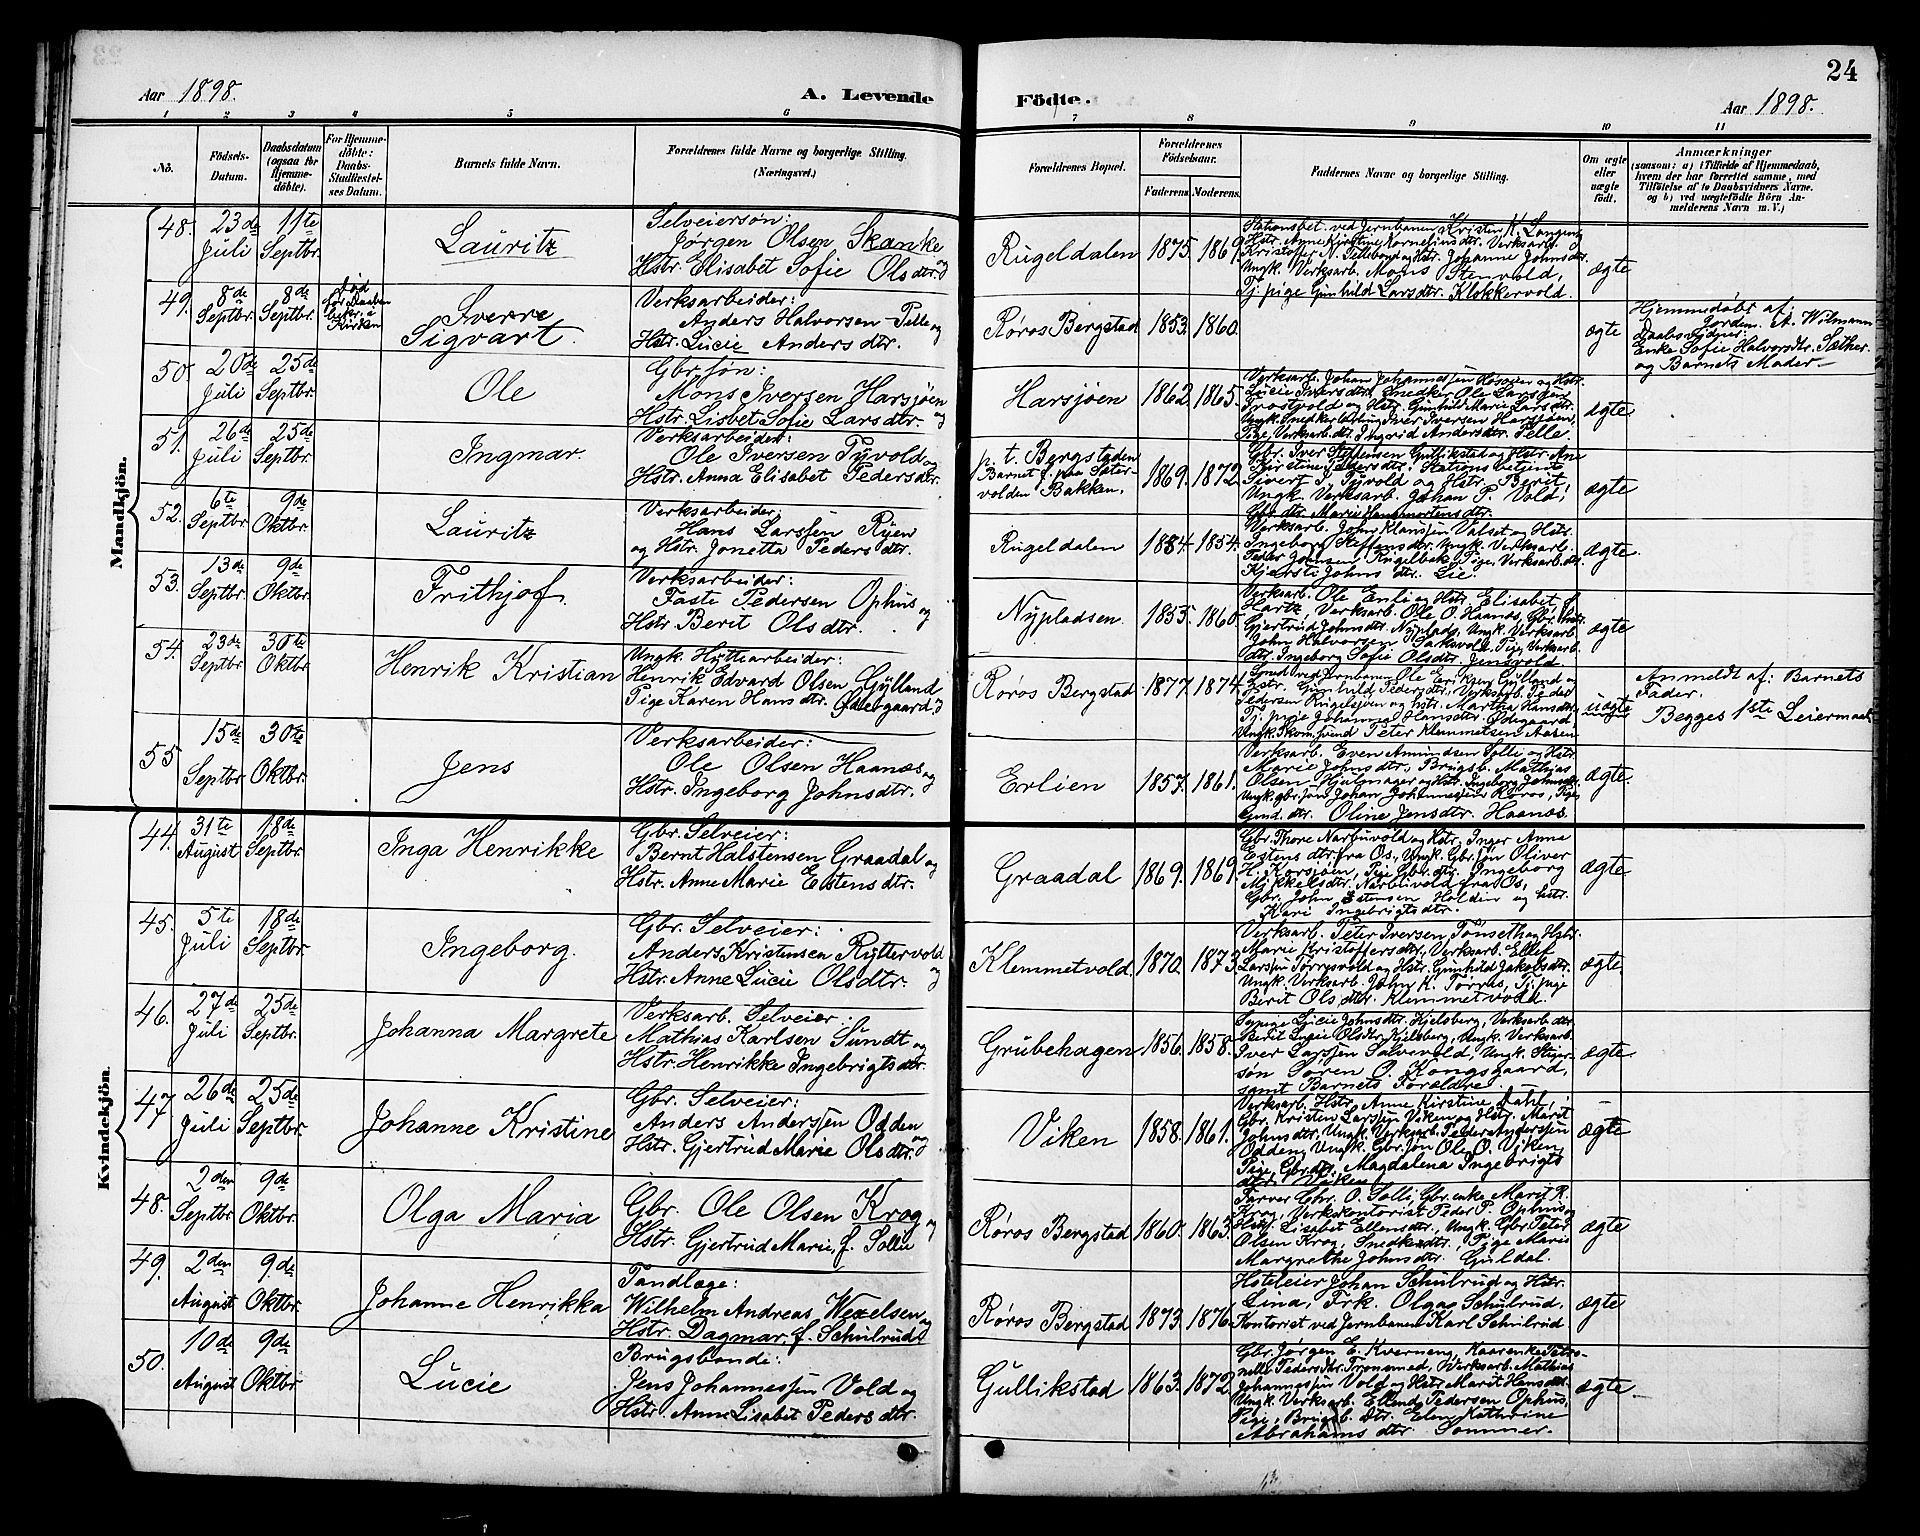 Aar 1898. A. Levende Födte. Aar 1898. 24
1 2 3 4 5 6 7 8 9 10 11
No.
Födsels-
Datum.
Daabsdatum
(ogsaa for
Hjemme-
döbte).
For Hjemme-
döbte:
Daabs-
Stadfæstel-
ses Datum.
Barnets fulde Navn.
Forældrenes fulde Navne og borgerlige Stilling.
(Næringsvei.)
Forældrenes Bopæl.
Forældrenes
Födselsaar.
Faderens. Moderens.
Faddernes Navne og borgerlige Stilling.
Om ægte
eller
uægte
født.
Anmærkninger
(saasom: a) i Tilfælde af Hjemmedaab,
hvem der har forrettet samme, med
Tilföielse af to Daabsvidners Navne.
og b) ved uægtefödte Börn An-
melderens Navn m. V.)
Mandkjön.
48. 23de Juli 11te Septbr.
Lauritz
Selveiersøn:
Jørgen Olsen Skanke og
Hstr. Elisabet Sofie Olsdtr.
Rugeldalen 1875. 1869.
Stationsbet. ved Jernbanen Kristen K. Langeng
Hstr. Anne Kirstine Korneliusdtr. Verksarb.
Kristoffer N. Tellebond og Hstr. Johanne Johnsdtr.
Ungk. Verksarb. Mons Stenvold,
Tj. pige Gunhild Larsdtr. Klokkervold.
ægte
49. 8de Septbr. 8de Septbr.
død
før Daaben
bekr. i
Kirken
Sverre
Sigvart.
Verksarbeider:
Anders Halvorsen Pelle og
Hstr. Lucie Andersdtr.
Røros Bergstad 1853. 1860.
ægte
Hjemmedøbt af
Jordem. A. Wilmann
Daabsvidner:
Enke Sofie Halvorsdtr. Sæther
og Barnets Moder
50. 20de Juli 25de Septbr.
Ole
Gbr. søn:
Mons Iversen Harsjøen og
Hstr. Lisbet Sofie Larsdtr.
Harsjøen 1862. 1865.
Lucie Iversdtr. Snedker Ole Larssen
Trostvold og Hstr. Gunhild Marie Larsdtr.
Pige, Verksarb. dtr. Ingrid Andersdtr. Pelle.
ægte
51. 26de Juli 25de Septbr.
Ingmar.
Verksarbeider:
Ole Iversen Tyvold og
Hstr. Anna Elisabet Pedersdtr.
p. t. Bergstaden
Barnet f. paa Sæter-
volden Bakken.
1869. 1872.
Gbr. Iver Steffensen Gullikstad og Hstr. Ane
Kjirstine Pedersdtr. Stationsbetjent
Sivert I. Tyvold og Hstr. Berit
Ungk. Verksarb. Johan P. Vold,
Gbr. dtr. Marie Hansmortensdtr.
ægte
52. 6te Septbr. 9de Oktbr.
Lauritz
Verksarbeider:
Hans Larssen Ryen
og Hstr. Jonetta Pedersdtr.
Rugeldalen 1854. 1854.
Verksarb. John Klaussen Valset og Hstr.
Ingeborg Steffensdtr. Ungk. Verksarb.
Peder Johnsen Rugelbek, Pige, Verksarb. dtr.
Kjersti Johnsdtr. Lie.
ægte.
53. 13de Septbr. 9de Oktbr.
Frithjof.
Verksarbeider:
Faste Pedersen Ophus og
Hstr. Berit Olsdtr.
Nypladsen 1855. 1860.
Verksarb. Ole Enli og Hstr. Elisabet f.
Hartz, Verksarb. Ole O. Haanæs, Gbr. hstr.
Gjertrud Johnsdtr. Nyplads, Ungk. Verksarb.
John Halvorsen Sakrisvold, Pige, Verksarb.
dtr. Ingeborg Sofie Olsdtr. Jensvold
ægte
54. 23de Septbr. 30te Oktbr.
Henrik Kristian
Ungk. Hyttearbeider:
Henrik Edvard Olsen Gylland og
Pige Karen Hansdtr. Ødegaard
Røros Bergstad 1877. 1874.
Smed ved Jernbanen Ole Eriksen Gylland og
Hstr. Gunhild Pedersdtr., Verksarb. Peder
Pedersen Rugelsjøen og hstr. Martha Hansdtr.
Tj. pige Johanna Hansdtr. Ødegaard
Ungk. Skom. svend Peter Klemmetsen Aasen
uægte
Anmeldt af: Barnets
Fader.
Begges 1ste Leiermaal
55. 15de Septbr. 30te Oktbr.
Jens
Verksarbeider:
Ole Olsen Haanæs og
Hstr. Ingeborg Johnsdtr.
Erlien 1857. 1861.
Verksarb. Even Amundsen Solli og Hstr.
Marie Johnsdtr, Brugsb. Mathias
Olsen Hjulmager og Hstr. Ingeborg Johnsdtr.
Ungk. gbr. søn Johan Johannessen Røros, Pige,
Gmd. dtr. Oline Jensdtr. Haanæs.
ægte.
Kvindekjön.
44. 31te August 18de Septbr.
Inga Henrikke
Gbr. Selveier:
Bernt Halstensen Graadal og
Hstr. Anne Marie Estensdtr.
Graadal 1869. 1869.
Gbr. Thore Narbuvold og Hstr. Inger Anna
Estensdtr. fra Os, Ungk. Gbr. søn Oliver
H. Korsjøen, Pige Gbr. dtr. Ingeborg
Mikkelsdtr. Narbuvold fra Os,
Gbr. John Estensen Holden og hstr.
Kari Ingebrigtsdtr.
ægte
45. 5te Juli 18de Septbr.
Ingeborg.
Gbr. Selveier:
Anders Kristensen Ryttervold og
Hstr. Anne Lucie Olsdtr.
Klemmetvold. 1870. 1873.
Verksarb. Peter Iversen Tønseth og Hstr.
Marie Kristoffersdtr, Verksarb. Ellef
Larssen Torresvold og Hstr. Gunhild Jakobsdtr.
Ungk. Verksarb. John K. Torres, Tj. pige
Berit Olsdtr. Klemmetvold.
ægte
46. 27de Juli 25de Septbr.
Johanna Margrete
Verksarb. Selveier:
Mathias Karlsen Sundt og
Hstr. Henrikke Ingebrigtsdtr.
Grubehagen 1856. 1858.
Sypige Lucie Johnsdtr. Kjelsberg, Verksarb. dtr.
Berit Lucie Olsdtr. Kjelsberg, Ungk. Verksarb.
Iver Larssen Salvevold, Ungk. Stiger-
søn Søren O. Kongsgaard,
samt Barnets Forældre.
ægte.
47. 26de Juli 25de Septbr.
Johanne Kristine
Gbr. Selveier:
Anders Anderssen Odden og
Hstr. Gjertrud Marie Olsdtr.
Viken 1858. 1861.
Verksarb. Hstr. Anne Kirstine Dahl,
Gbr. Kristen Larssen Viken og Hstr. Marit
Johnsdtr, Ungk. Verksarb. Peder Anderssen
Odden, Ungk. Gbr. søn Ole O. Viken,
Pige, Gbr. dtr. Magdalena Ingebrigts
dtr. Viken
ægte
48. 2den Septbr. 9de Oktbr.
Olga Maria
Gbr. Ole Olsen Krog og
Hstr. Gjertrud Marie, f. Sollie
Røros Bergstad 1860. 1863.
Farver Chr. O. Solli, Gbr. enke Marit R.
Krog, Verkskontorist Peder P. Ophus og
Hstr. Lisabet Ellensdtr, Ungk. Gbr. Peter
Olsen Krog, Snedkerdtr, Pige Marie
Margrethe Johnsdtr. Guldal.
ægte
49. 2den August 9de Oktbr.
Johanne Henrikka
Tandlæge:
Wilhelm Andreas Wexelsen og
Hstr. Dagmar, f. Schulrud
Røros Bergstad 1873. 1876.
Hoteleier Johan Schulrud og Hstr.
Lina, Frk. Olga Schulrud,
Kontorist ved Jernbanen Karl Schulrud
ægte
50. 10de August 9de Oktbr.
Lucie
Brugsbonde:
Jens Johannessen Vold og
Hstr. Anne Lisabet Pedersdtr.
Gullikstad 1863. 1872.
Gbr. Jørgen E. Kverneng, Kaarenke Petro-
nelle Pedersdtr. Tronsmed, Verksarb. Mathias
Johannessen Vold og Hstr. Marit Hansdtr.
Ungk. Verksarb. Ellend Pedersen Ophus,
Pige, Brugsb. dtr. Elen Kathrine
Abrahamsdtr. Sommer.
ægte